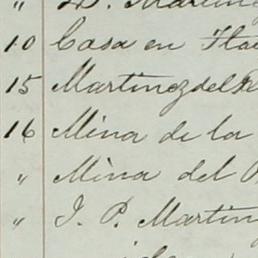 " D. Martin
10 Casa en
15 Martinez del
16 Mina de la
" Mina del
" J. P. Martin